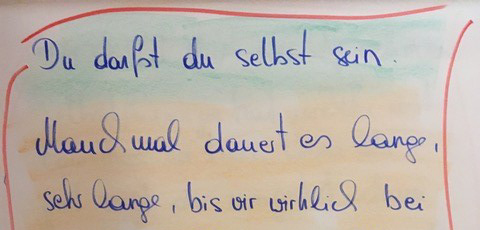 Du darfst du selbst sein.
Manchmal dauert es lange,
sehr lange, bis wir wirklich bei